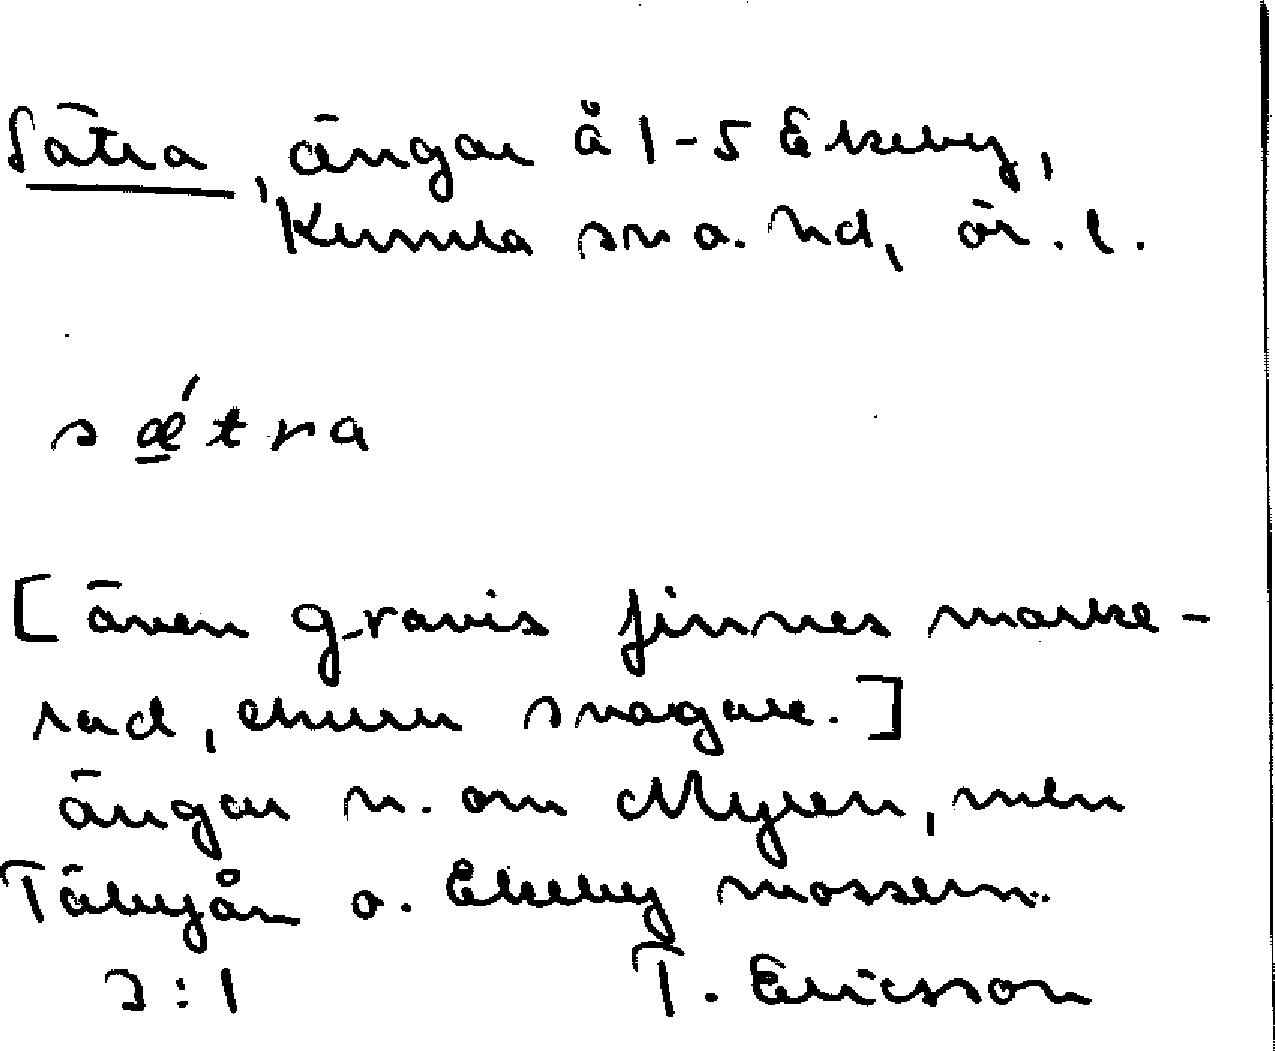 Sätra, ängar å 1-5 Ekeby,
Kumla sn o. hd, ör. l.
sǽtra
[även gravis finnes marke-
rad, ehuru svagare.]
ängar n. om Myren, mln
Täbyån o. Ekeby mossen.
3:1 T. Ericsson